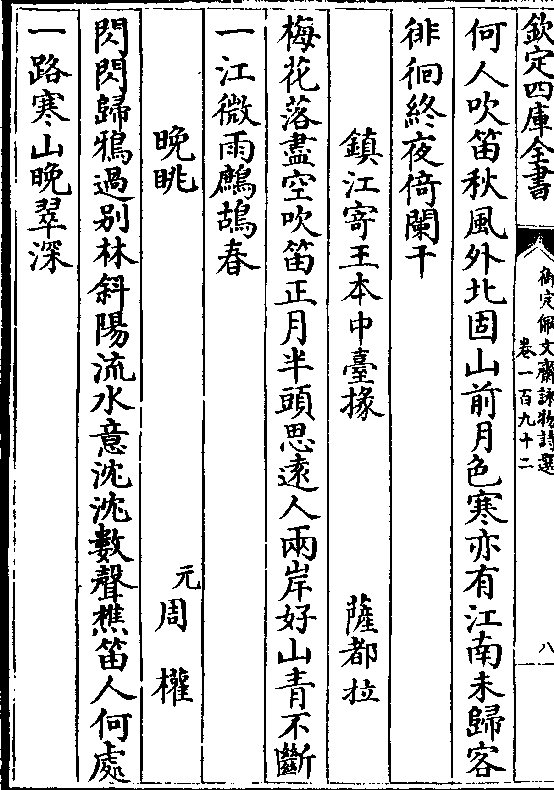 欽定四庫全書
御定佩文齋詠物詩選
卷一百九十二
八
何人吹笛秋風外北固山前月色寒亦有江南未歸客
徘徊終夜倚闌干
鎮江寄王本中臺掾
薩都拉
梅花落盡空吹笛正月半頭思遠人兩岸好山青不斷
一江微雨鷓鴣春
晚眺
元周權
閃閃歸鴉過別林斜陽流水意沈沈數聲樵笛人何處
一路寒山晚翠深